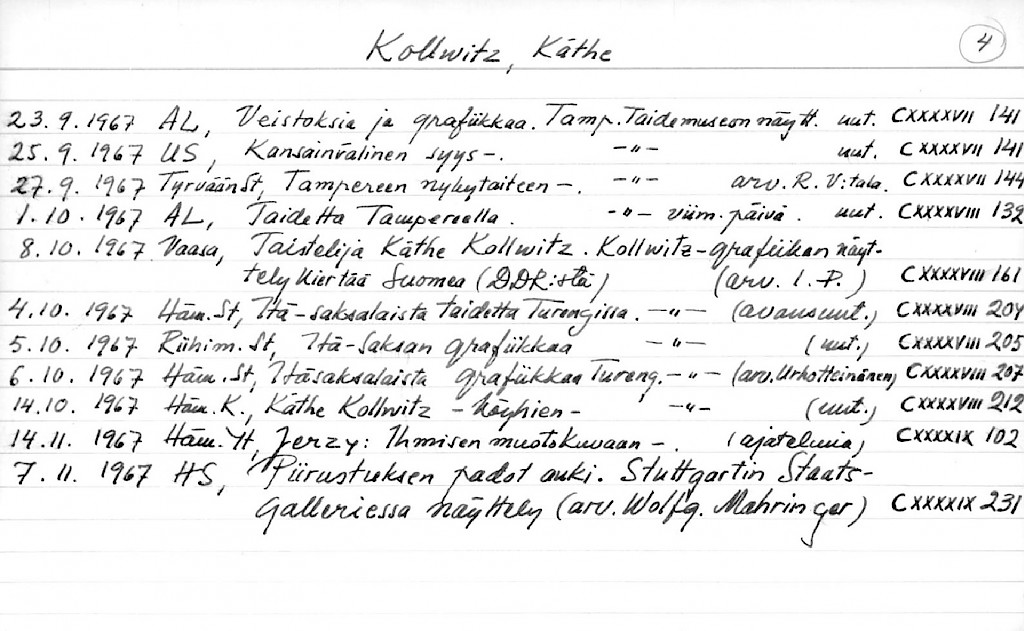 Kollwitz, Käthe 4
23.9.1967 AL, Veistoksia ja grafiikkaa. Tamp. Taidemuseon näytt. uut. CXXXXVII 141
25.9.1967 US, Kansainvälinen syys-. -"- uut. CXXXXVII 141
27.9.1967 TyrväänSt, Tampereen nykytaiteen -. -"- arv. R. V:tala. CXXXXVII 144
1.10.1967 AL, Taidetta Tampereella. -"- viim. päivä. uut. CXXXXVIII 139
8.10.1967 Vaasa, Taistelija Käthe Kollwitz. Kollwitz-grafiikan näyt-
tely kiertää Suomea (DDR:stä) (arv. I. P.) CXXXXVIII 161
4.10.1967 Häm.St, Itä-saksalaista taidetta Turengissa. -"- (avausuut.) CXXXXVIII 204
5.10.1967 Riihim.St, Itä-Saksan grafiikkaa -"- (uut.) CXXXXVIII 205
6.10.1967 Häm.St, Itäsaksalaista grafiikkaa Tureng. -"- (arv. Urho Heinänen) CXXXXVIII 207
14.10.1967 Häm.K., Käthe Kollwitz - köyhien - -"- (uut.) CXXXXVIII 212
14.11.1967 Häm.YH, Jerzy: Ihmisen muotokuvaan -. (ajatelmia) CXXXXIX 102
7.11.1967 HS, Piirustuksen padot auki. Stuttgartin Staats-
Galleriessa näyttely (arv. Wolfg. Mahringer) CXXXXIX 231